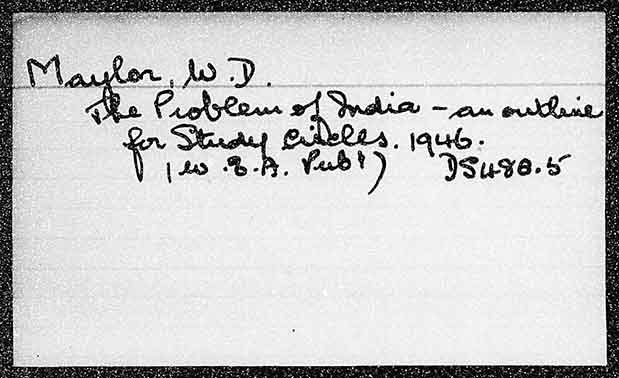 Maylor, W. D.
The Problem of India - an outline
for Study Circles. 1946.
(W.E.A. Publ) DS480.5